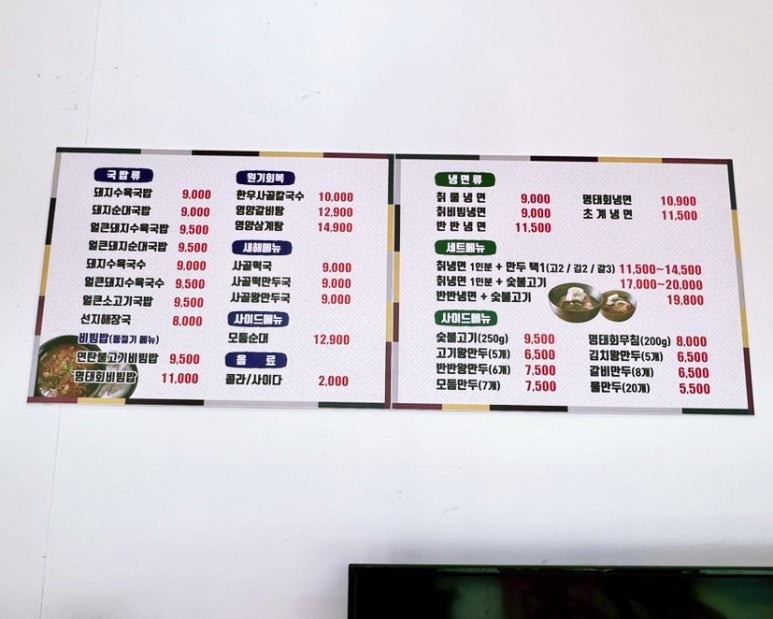 국밥류
돼지수육국밥 9,000
돼지순대국밥 9,000
얼큰돼지수육국밥 9,500
얼큰돼지순대국밥 9,500
돼지수육국수 9,000
얼큰돼지수육국수 9,500
얼큰소고기국밥 9,500
선지해장국 8,000
비빔밥(동절기 메뉴)
연탄불고기비빔밥 9,500
명태회비빔밥 11,000
원기회복
한우사골칼국수 10,000
영양갈비탕 12,900
영양삼계탕 14,900
새해메뉴
사골떡국 9,000
사골떡만두국 9,000
사골왕만두국 9,000
사이드메뉴
모듬순대 12,900
음료
콜라/사이다 2,000
냉면류
칡물냉면 9,000
칡비빔냉면 9,000
반반냉면 11,500
명태회냉면 10,900
초계냉면 11,500
세트메뉴
칡냉면 1인분 + 만두 택1(고2 / 김2 / 갈3) 11,500~14,500
칡냉면 1인분 + 숯불고기 17,000~20,000
반반냉면 + 숯불고기 19,800
사이드메뉴
숯불고기(250g) 9,500
고기왕만두(5개) 6,500
반반왕만두(6개) 7,500
모듬만두(7개) 7,500
명태회무침(200g) 8,000
김치왕만두(5개) 6,500
갈비만두(8개) 6,500
물만두(20개) 5,500